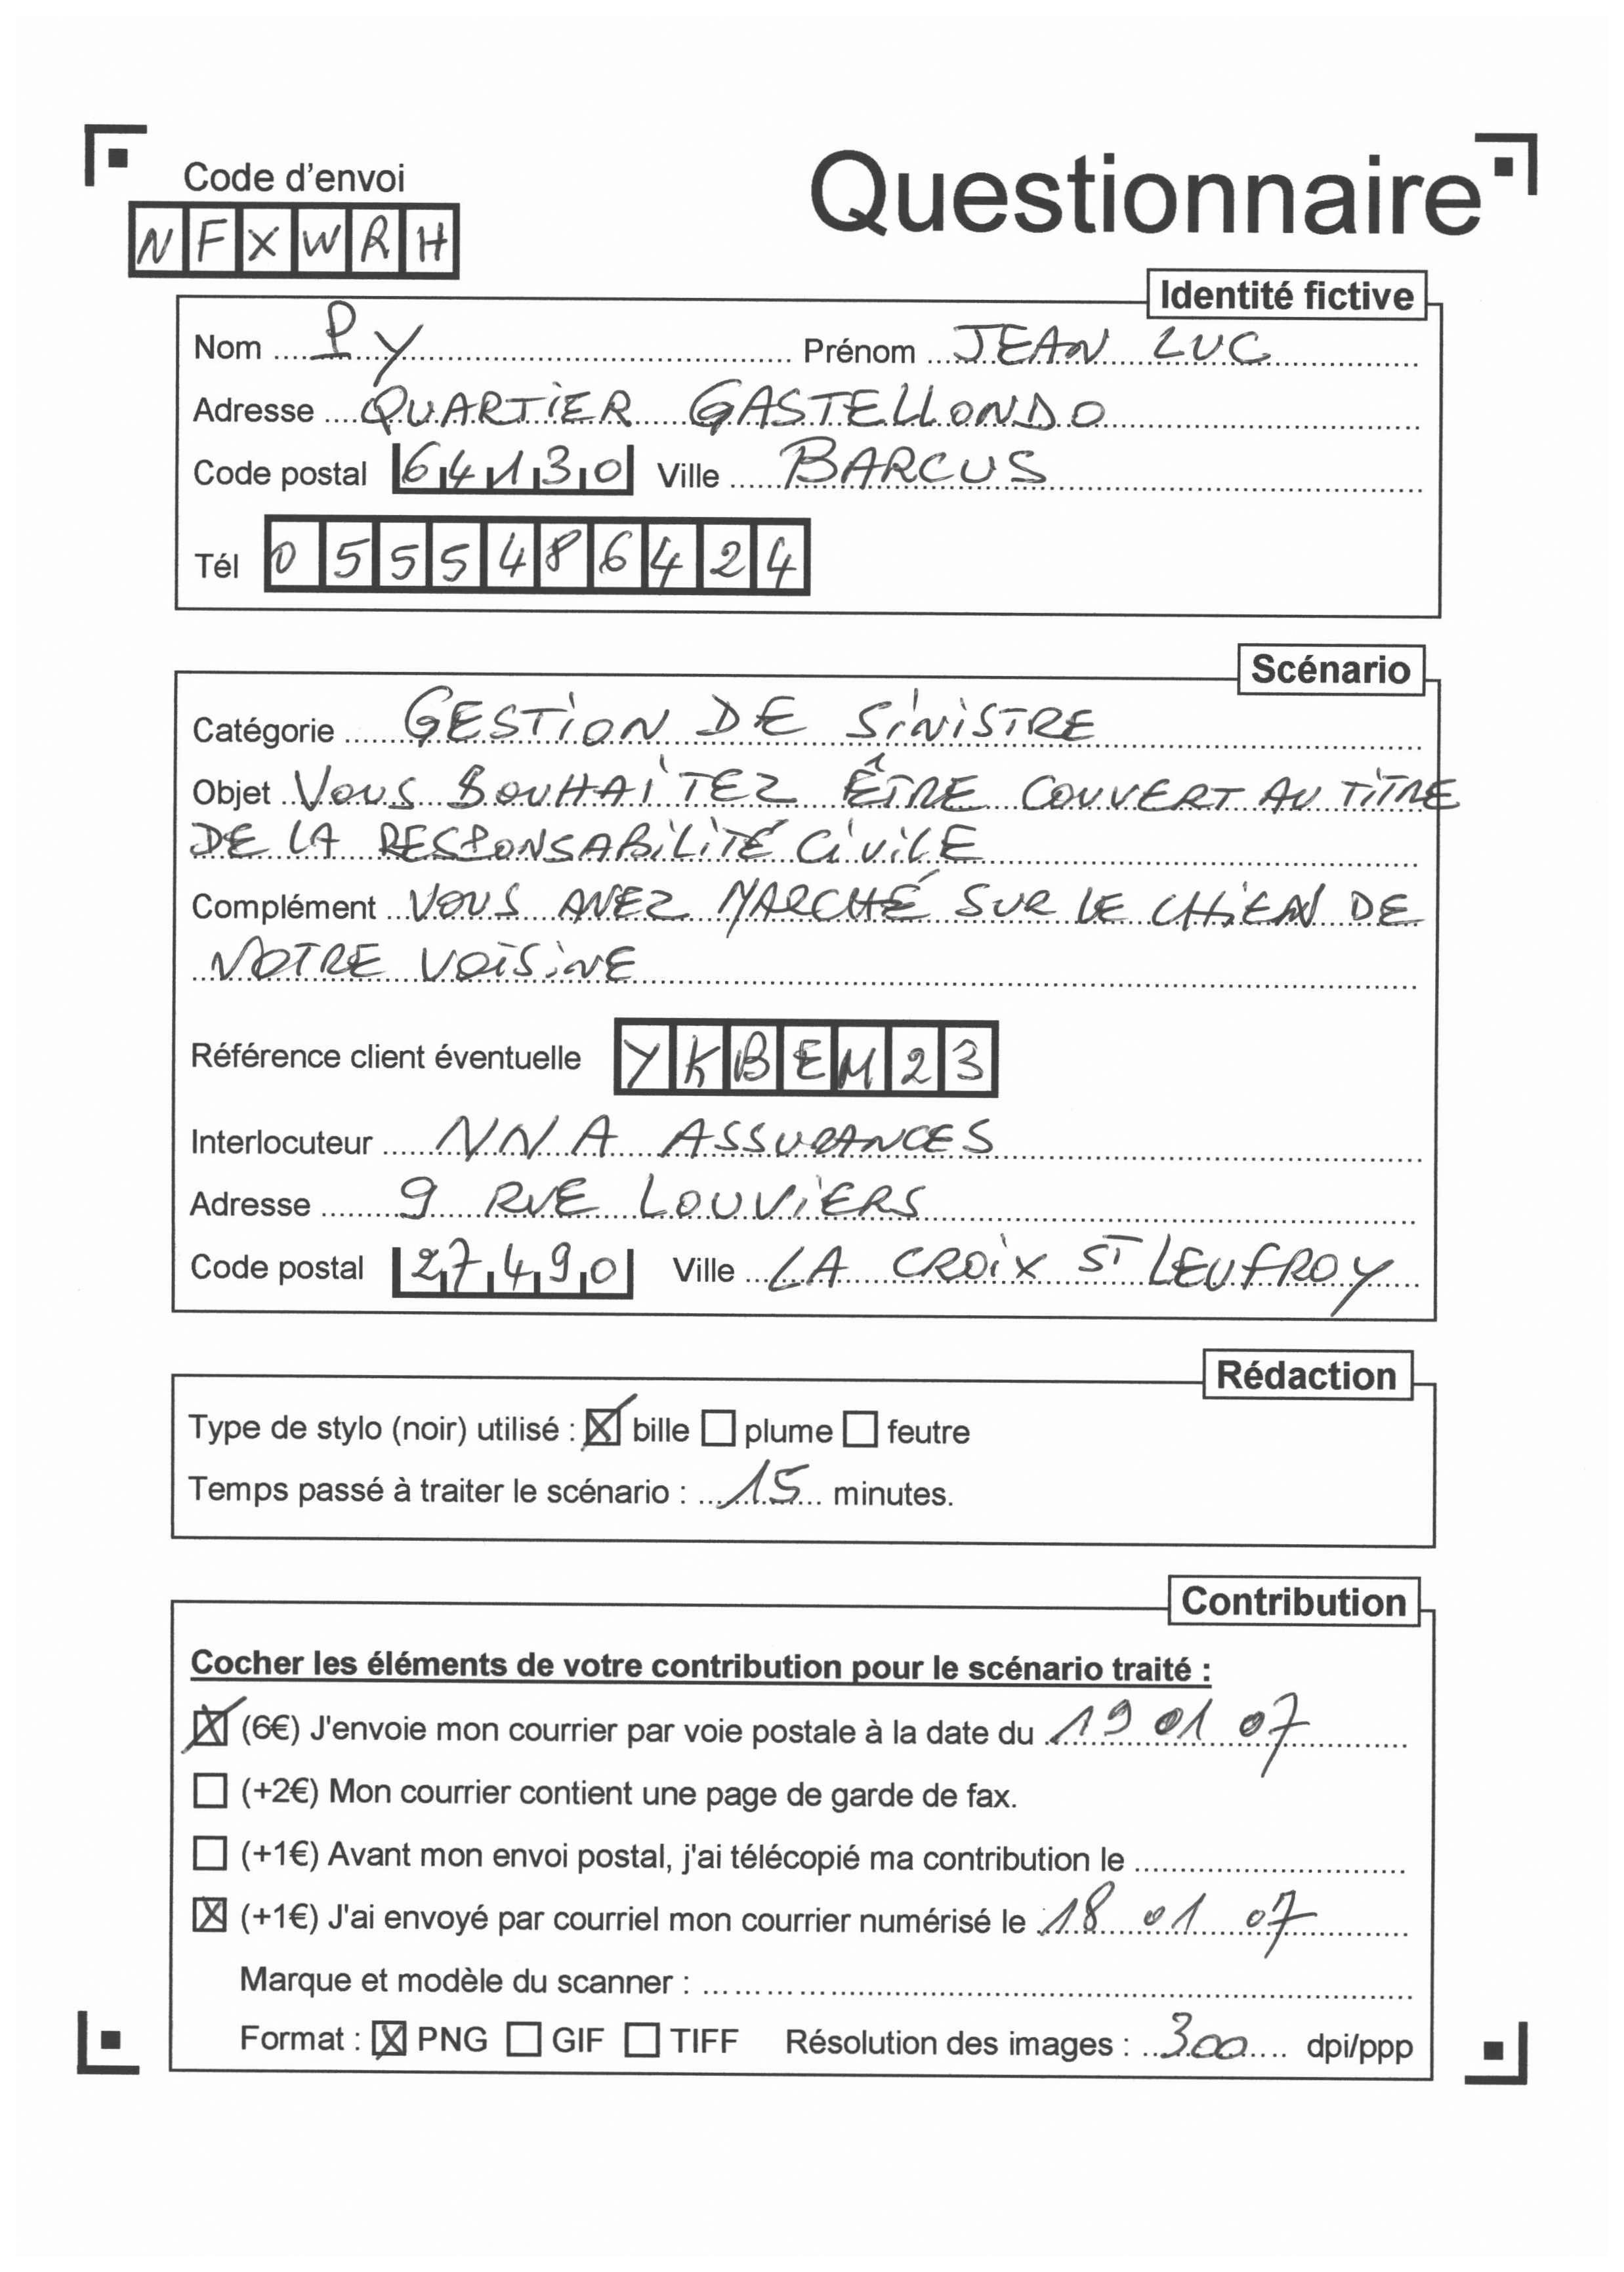 Code d'envoi
NFXWRH
Questionnaire
Identité fictive
Nom PY Prénom JEAN LUC
Adresse QUARTIER GASTELLONDO
Code postal 64130 Ville BARCUS
Tél 0555486424
Scénario
Catégorie GESTION DE SINISTRE
Objet VOUS SOUHAITEZ ÊTRE COUVERT AU TITRE
DE LA RESPONSABILITÉ CIVILE
Complément VOUS AVEZ MARCHÉ SUR LE CHIEN DE
VOTRE VOISINE
Référence client éventuelle YKBEM23
Interlocuteur NNA ASSURANCES
Adresse 9 RUE LOUVIERS
Code postal 27490 Ville LA CROIX ST LEUFROY
Rédaction
Type de stylo (noir) utilisé : ☒ bille ☐ plume ☐ feutre
Temps passé à traiter le scénario : 15 minutes.
Contribution
Cocher les éléments de votre contribution pour le scénario traité :
☒ (6€) J'envoie mon courrier par voie postale à la date du 19 01 07
☐ (+2€) Mon courrier contient une page de garde de fax.
☐ (+1€) Avant mon envoi postal, j'ai télécopié ma contribution le
☒ (+1€) J'ai envoyé par courriel mon courrier numérisé le 18 01 07
Marque et modèle du scanner :
Format : ☒ PNG ☐ GIF ☐ TIFF Résolution des images : 300 dpi/ppp